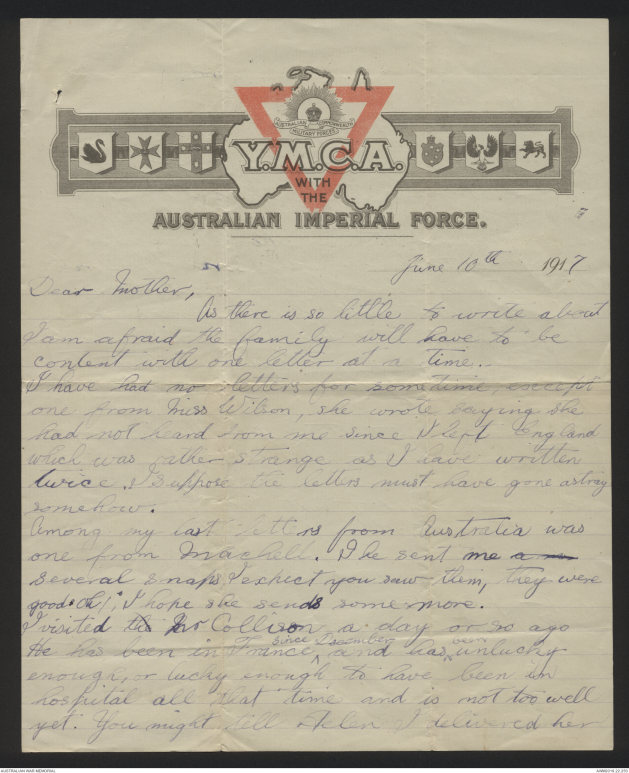 AUSTRALIAN COMMONWEALTH
MILITARY FORCES
Y.M.C.A.
WITH
THE
AUSTRALIAN IMPERIAL FORCE.
June 10th 1917
Dear Mother,
As there is so little to write about
I am afraid the family will have to be
content with one letter at a time.
I have had no letters for sometime, except
one from Miss Wilson, she wrote saying she
had not heard from me since I left England
which was rather strange as I have written
twice. I suppose the letters must have gone astray
somehow.
Among my last letters from Australia was
one from Machell. She sent me a
several snaps I expect you saw them, they were
good oh!, I hope she sends some more.
I visited Mr Collison a day or so ago
since December been
He has been in France, and has unlucky
enough, or lucky enough to have been in
hospital all that time and is not too well
yet. You might tell Helen I delivered her
AUSTRALIAN WAR MEMORIAL